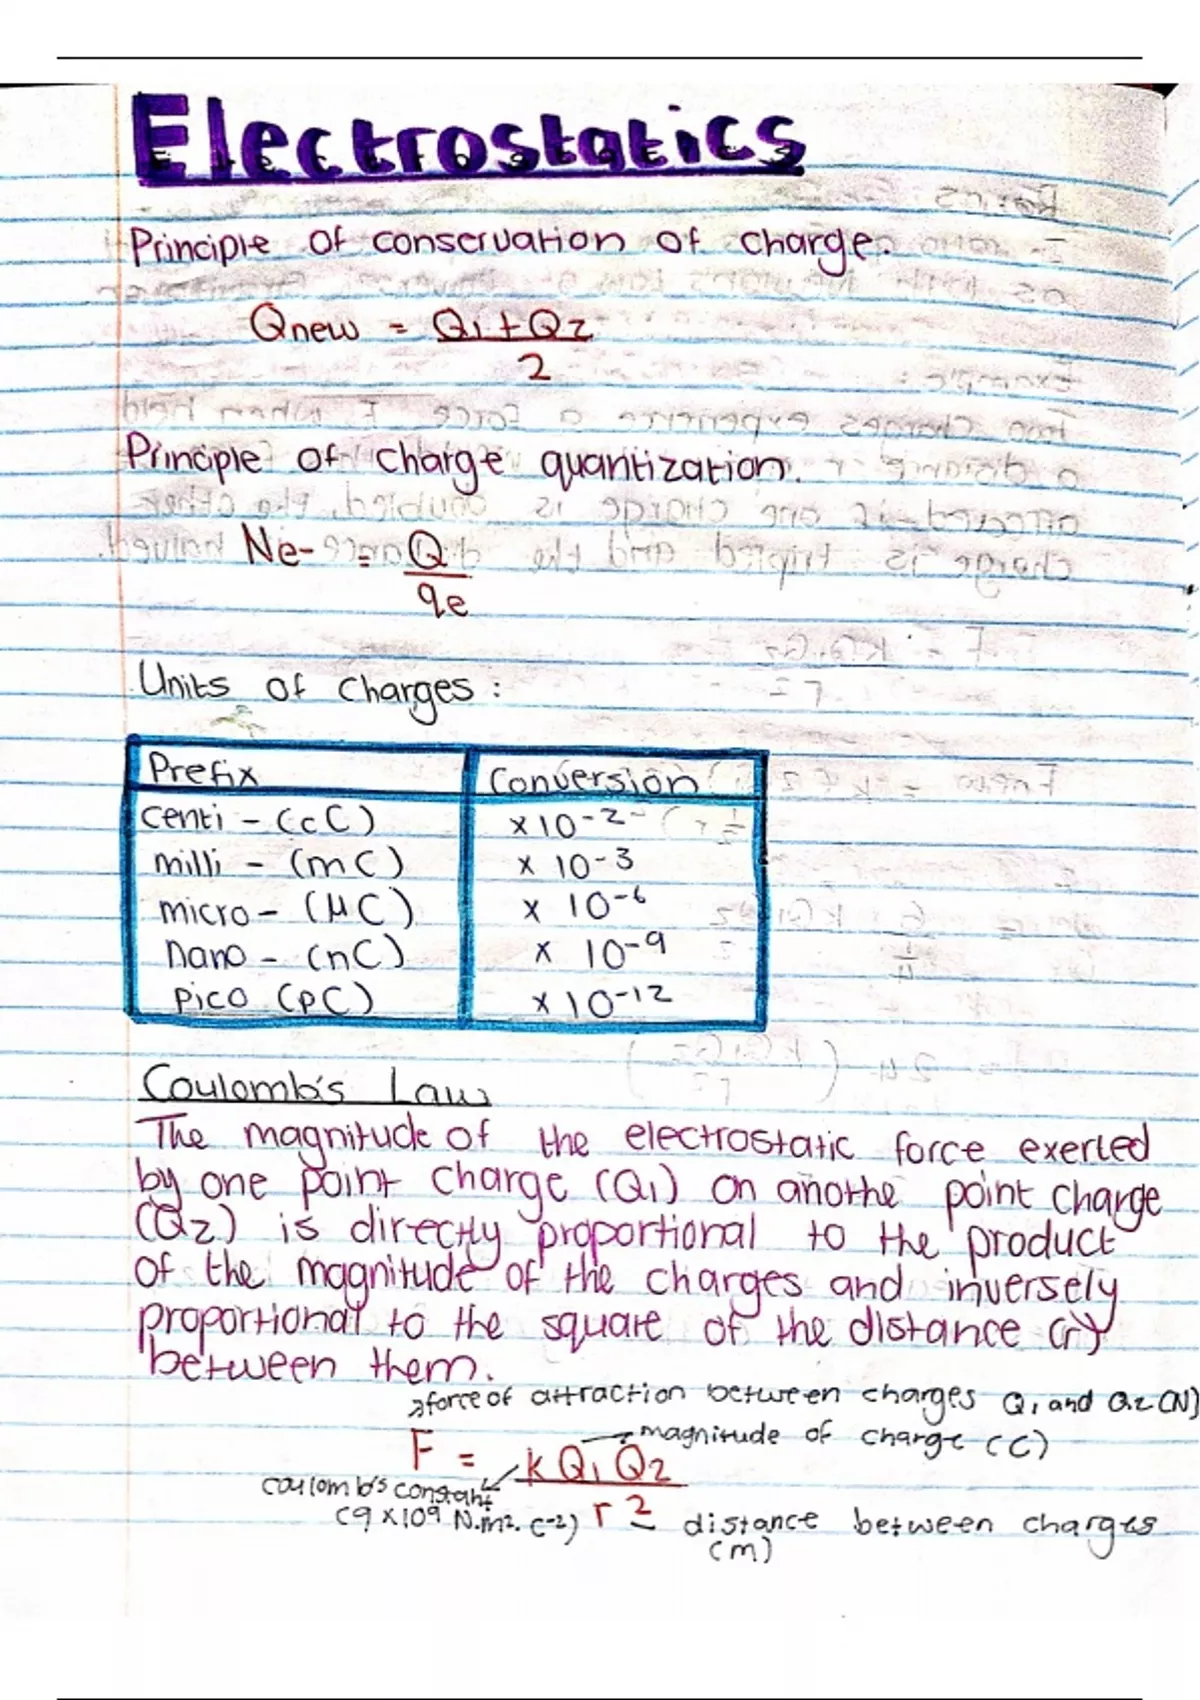 Electrostatics
Principle of conservation of charge.
Qnew = Q1+Q2
2
Principle of charge quantization.
Ne- = Q
qe
Units of charges:
Prefix Conversion
centi - (cC) x10-2
milli - (mC) x 10-3
micro - (μC) x 10-6
nano - (nC) x 10-9
pico (pC) x10-12
Coulomb's Law
The magnitude of the electrostatic force exerted
by one point charge (Q1) on anothe point charge
(Q2) is directly proportional to the product
of the magnitude of the charges and inversely
proportional to the square of the distance (r)
between them.
force of attraction between charges Q1 and Q2 (N)
F = kQ1Q2 magnitude of charge (C)
coulomb's constant
(9 x109 N.m2. c-2) r2 distance between charges
(m)